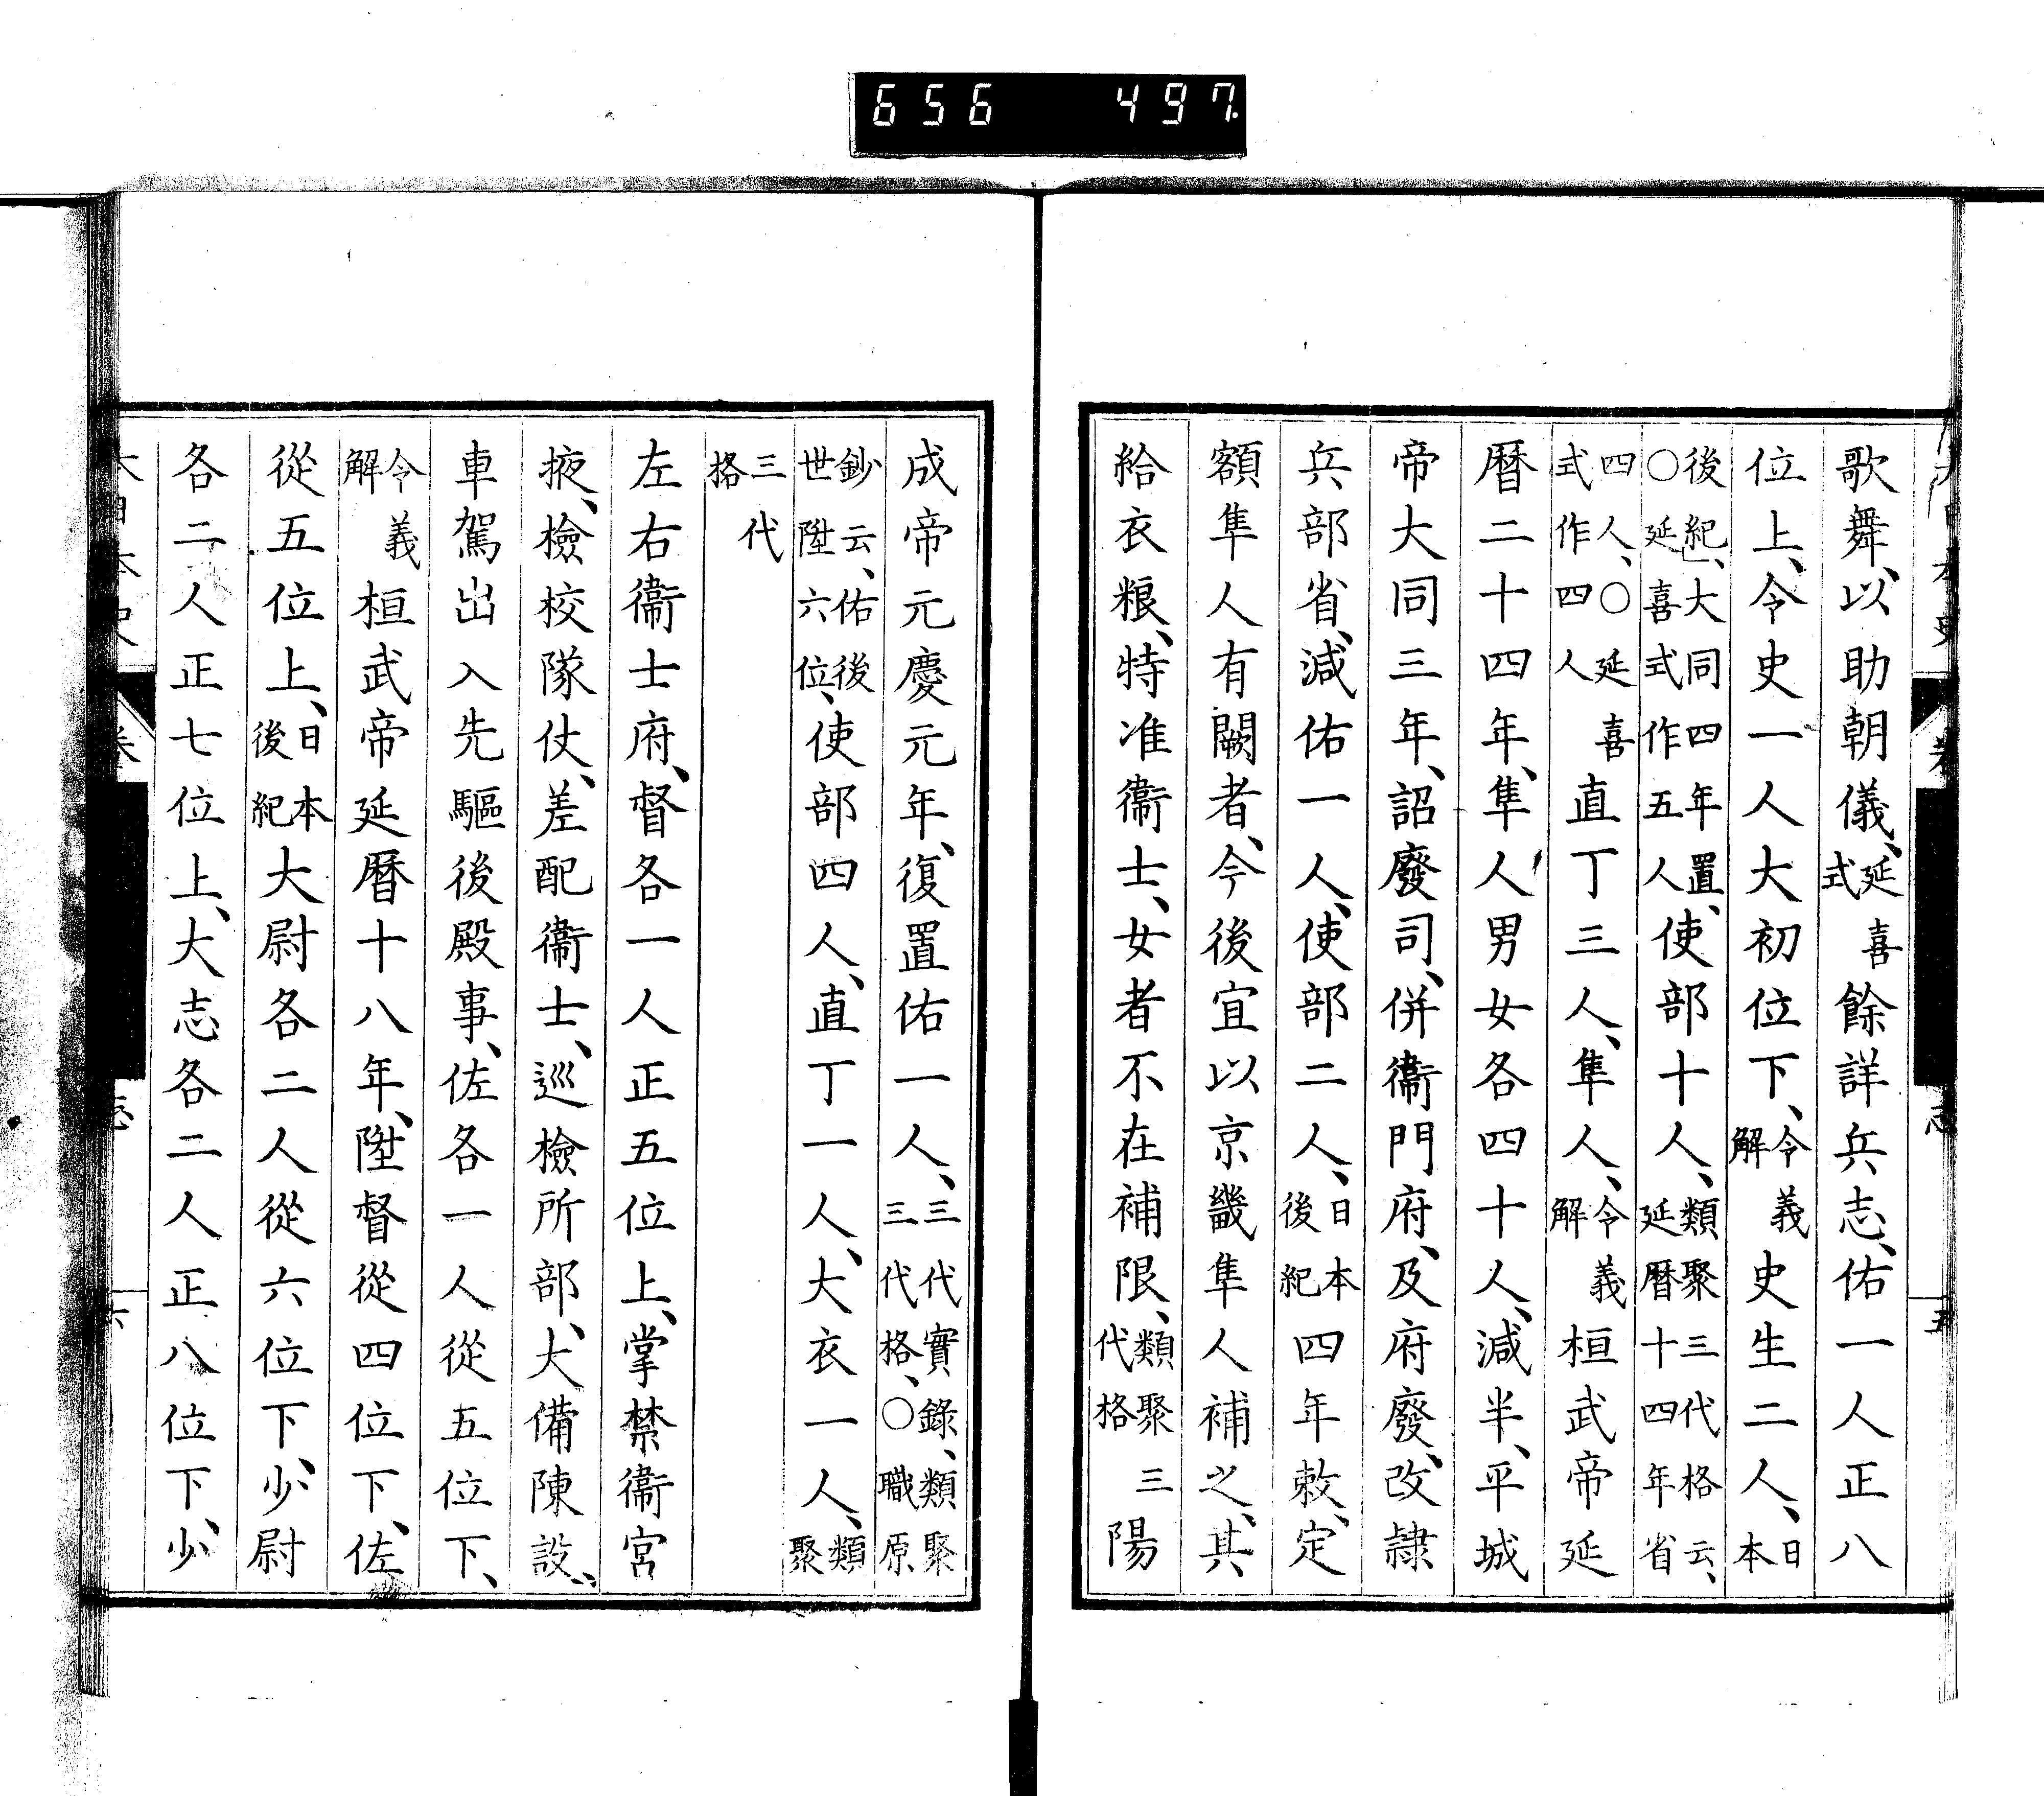 656 497
歌舞、以助朝儀、延喜式餘詳兵志、佑一人正八
位上、令史一人大初位下、令義解史生二人、日本
後紀」、大同四年置、○延喜式作五人使部十人、類聚三代格云、延暦十四年省
四人、○延喜式作四人直丁三人、隼人、令義解桓武帝延
暦二十四年、隼人男女各四十人、減半、平城
帝大同三年、詔廢司、併衞門府、及府廢、改隷
兵部省、減佑一人、使部二人、日本後紀四年敕、定
額隼人有闕者、今後宜以京畿隼人補之、其
給衣粮、特准衞士、女者不在補限、類聚三代格陽
成帝元慶元年、復置佑一人、三代實錄、類聚三代格、○職原
鈔云、佑後世陞六位、使部四人、直丁一人、大衣一人、類聚
三代格
左右衞士府、督各一人正五位上、掌禁衞宮
掖、檢校隊仗、差配衞士、巡檢所部、大備陳設、
車駕出入先驅後殿事、佐各一人從五位下、
令義解桓武帝延暦十八年、陞督從四位下、佐
從五位上、日本後紀大尉各二人從六位下、少尉
各二人正七位上、大志各二人正八位下、少